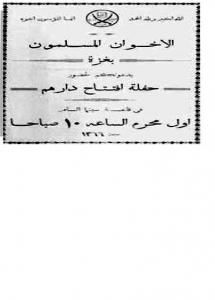 الله اكبر ولله الحمد
انما المؤمنون اخوة
الاخوان المسلمون
بغزة
يدعونكم لحضور
حفلة افتتاح دارهم
في قاعة سينما السامر
اول محرم الساعه ١٠ صباحا
سنة ١٣٦٦